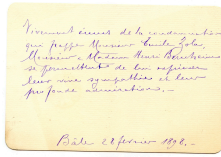 Vivement émus de la condamnation
qui frappe Monsieur Emile Zola,
Monsieur & Madame Henri
se permettent de lui exprimer
leur vive sympathie et leur
profonde admiration. —
Bâle 28 février 1898. —